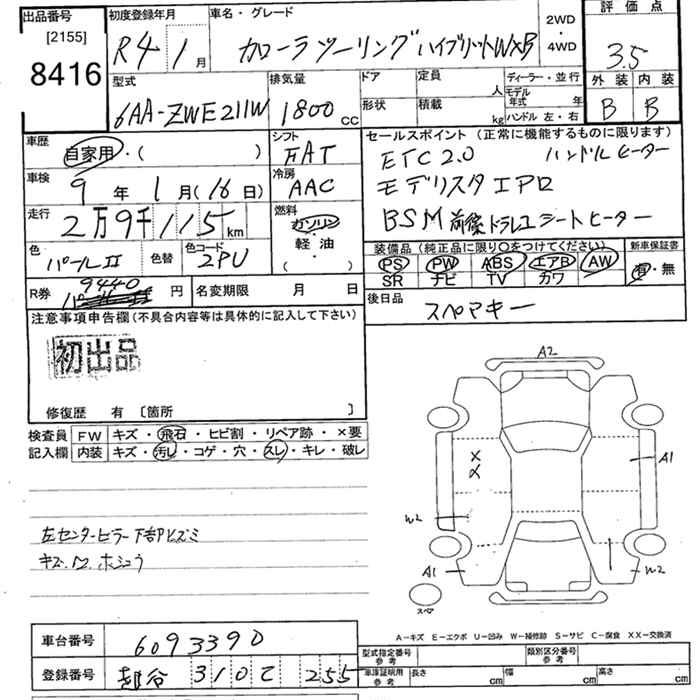 出品番号 [2155] 8416
初度登録年月 R4 / 1 月
車名・グレード カローラツーリング ハイブリットWXB
2WD・4WD
評価点 3.5
外装 B 内装 B
型式 6AA-ZWE211W
排気量 1800 CC
ドア 形状
定員 人
積載 kg
ディーラー・並行
モデル年式 年
ハンドル 左・右
車歴 自家用・( )
シフト FAT
車検 9 年 1 月 (16 日)
冷房 AAC
走行 2万9千115 km
燃料 ガソリン・軽油・( )
色 パールII 色替
色コード 2PU
R券 9440 円
名変期限 月 日
セールスポイント(正常に機能するものに限ります)
ETC2.0 ハンドルヒーター
モデリスタエアロ
BSM 前後ドラレコ シートヒーター
装備品(純正品に限り○をつけてください)
PS PW ABS エアB AW
SR ナビ TV カワ
新車保証書 有・無
後日品 スペアキー
注意事項申告欄(不具合内容等は具体的に記入して下さい)
初出品
修復歴 有 [箇所 ]
検査員記入欄
FW キズ・飛石・ヒビ割・リペア跡・×要
内装 キズ・汚レ・コゲ・穴・スレ・キレ・破レ
左センターピラー下部ヒズミ
A2
A1
X
W2
A1
W2
スペア
A−キズ E−エクボ U−凹み W−補修跡 S−サビ C−腐食 XX−交換済
車台番号 6093390
登録番号 310 255
型式指定番号 参考
類別区分番号 参考
車庫証明用 参考 長さ cm 幅 cm 高さ cm